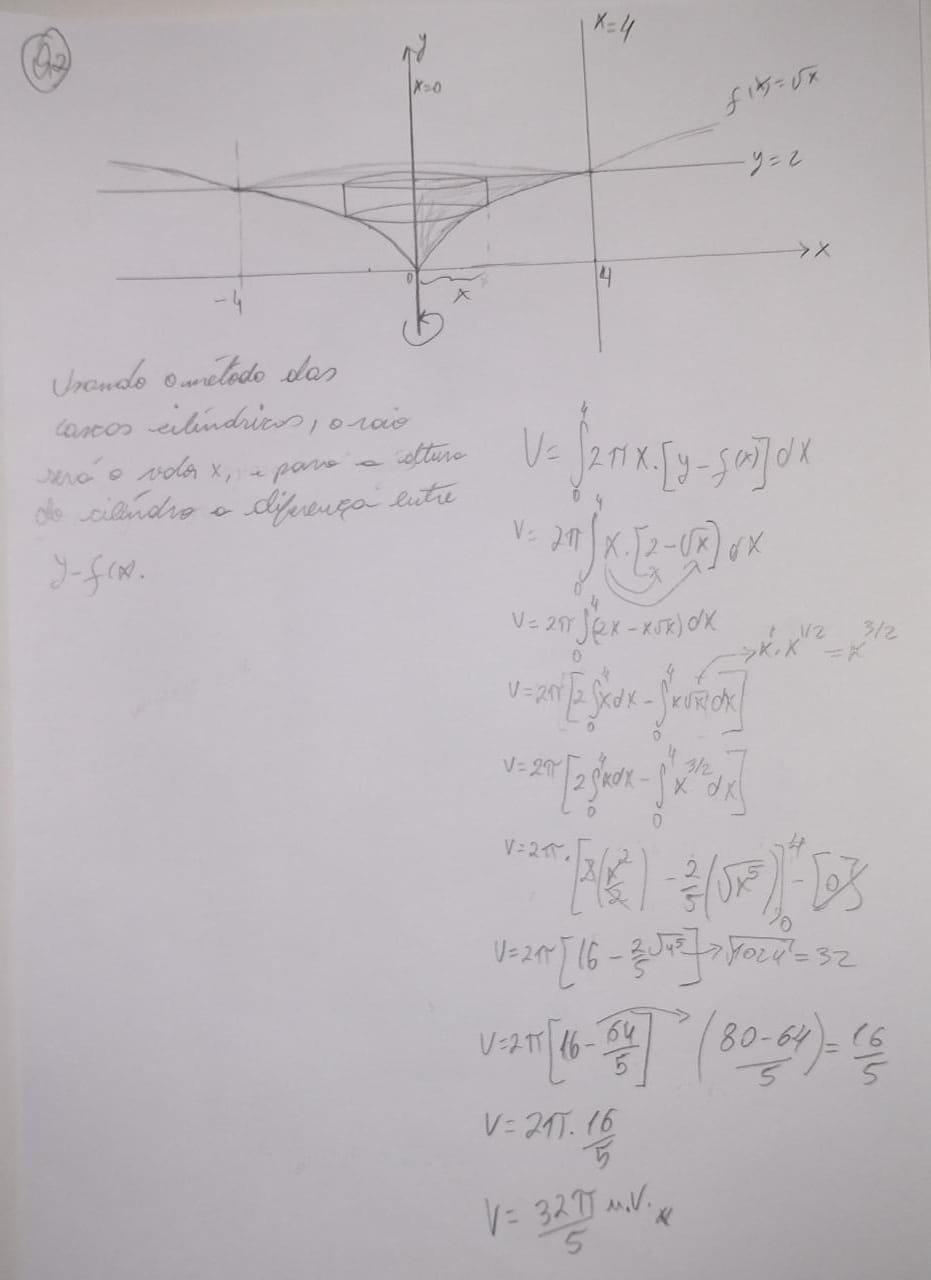 Q2
y
x=0
x=4
f(x)=√x
y=2
x
0
-4
x
4
Usando o método das
cascas cilíndricas, o raio
será o valor x, e para a altura
do cilindro a diferença entre
y-f(x).
V= ∫₀⁴ 2πx.[y-f(x)] dx
V= 2π∫₀⁴ x.[2-√x] dx
V=2π ∫₀⁴ (2x-x√x) dx
V=2π [2∫₀⁴ x dx - ∫₀⁴ x√x dx] → x¹.x^1/2 = x^3/2
V=2π [2∫₀⁴ x dx - ∫₀⁴ x^3/2 dx]
V=2π. [2(x²/2) - 2/5(√x⁵)]₀⁴ - [0]
V=2π [16 - 2/5 √4⁵] → √1024 = 32
V=2π [16 - 64/5] → (80-64/5) = 16/5
V= 2π. 16/5
V= 32π/5 u.V.